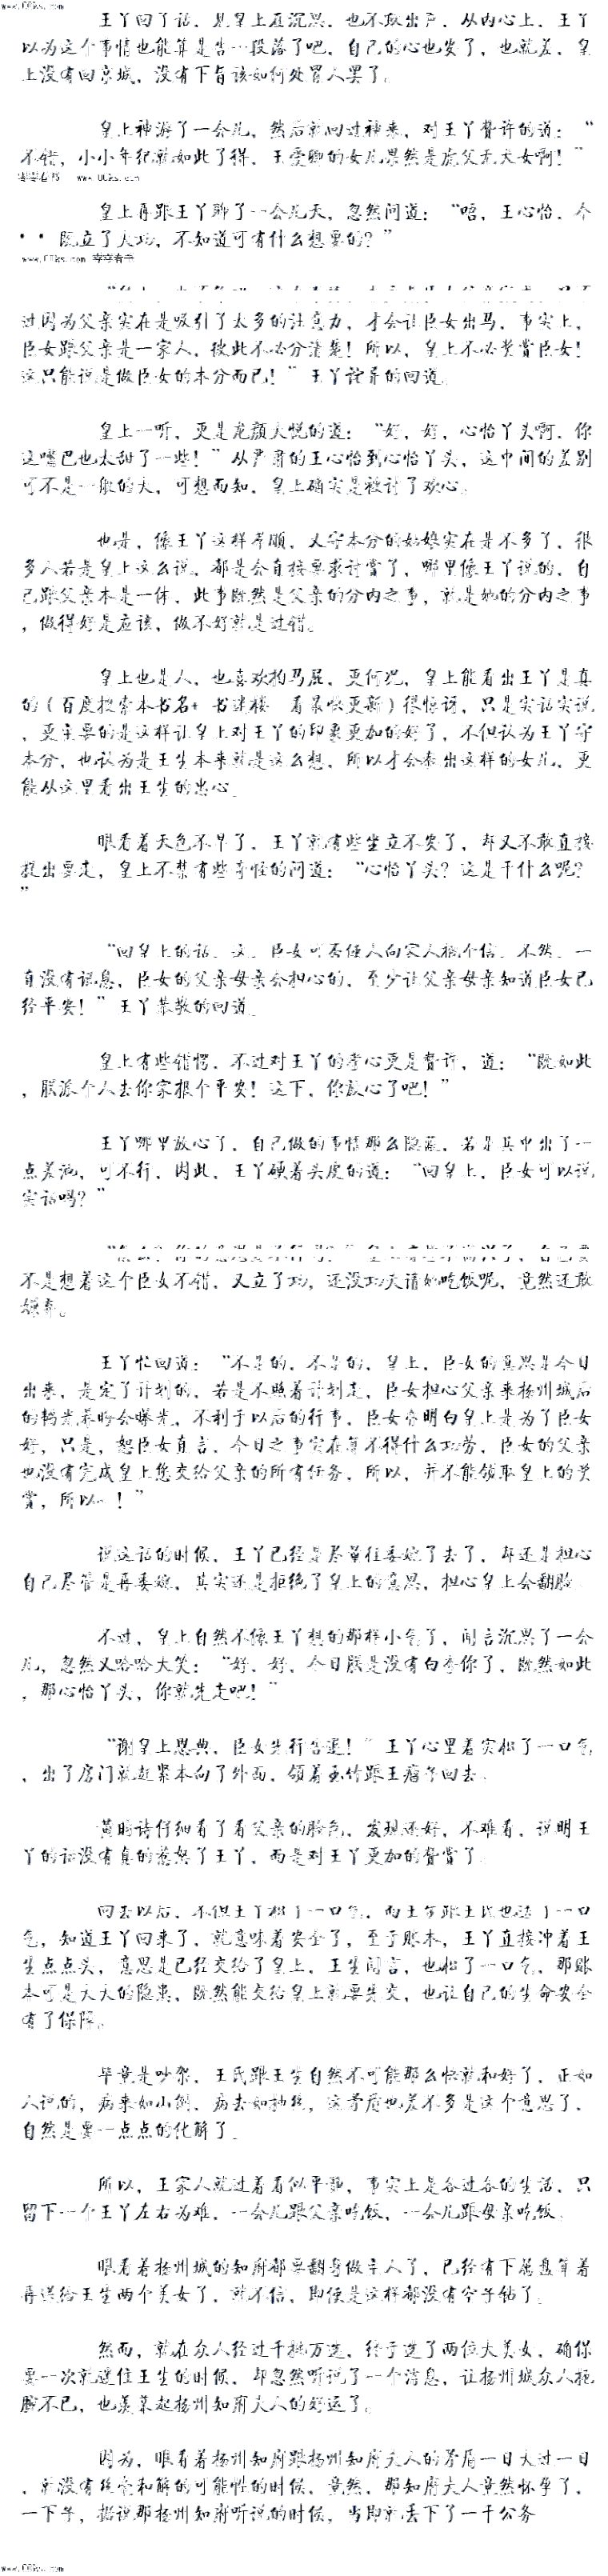 www.00ks.com
王丫回了话，见皇上在沉思，也不敢出声，从内心上，王丫
以为这个事情也能算是告一段落了吧，自己的心也安了，也就差，皇
上没有回京城，没有下旨该如何处置人罢了。
皇上神游了一会儿，然后就回过神来，对王丫赞许的道：“
不错，小小年纪就如此了得，王爱卿的女儿果然是虎父无犬女啊！”
www.00ks.com
皇上再跟王丫聊了一会儿天，忽然问道：“唔，王心怡，今
既立了大功，不知道可有什么想要的？”
www.00ks.com
过因为父亲实在是吸引了太多的注意力，才会让臣女出马，事实上，
臣女跟父亲是一家人，彼此不必分清楚！所以，皇上不必奖赏臣女！
这只能说是做臣女的本分而已！”王丫诧异的回道。
皇上一听，更是龙颜大悦的道：“好，好，心怡丫头啊，你
这嘴巴也太甜了一些！”从严肃的王心怡到心怡丫头，这中间的差别
可不是一般的大，可想而知，皇上确实是被讨了欢心。
也是，像王丫这样孝顺，又守本分的姑娘实在是不多了，很
多人若是皇上这么说，都是会直接要求讨赏了，哪里像王丫说的，自
己跟父亲本是一体，此事既然是父亲的分内之事，就是她的分内之事
，做得好是应该，做不好就是过错。
皇上也是人，也喜欢拍马屁，更何况，皇上能看出王丫是真
的（百度搜索本书名+ 书迷楼 看最快更新）很惊讶，只是实话实说
，更主要的是这样让皇上对王丫的印象更加的好了，不但认为王丫守
本分，也认为是王生本来就是这么想，所以才会养出这样的女儿，更
能从这里看出王生的忠心。
眼看着天色不早了，王丫就有些坐立不安了，却又不敢直接
提出要走，皇上不禁有些奇怪的问道：“心怡丫头？这是干什么呢？
”
“回皇上的话，这，臣女可否使人向家人报个信，不然，一
直没有讯息，臣女的父亲母亲会担心的，至少让父亲母亲知道臣女已
经平安！”王丫恭敬的回道。
皇上有些错愕，不过对王丫的孝心更是赞许，道：“既如此
，朕派个人去你家报个平安！这下，你放心了吧！”
王丫哪里放心了，自己做的事情那么隐蔽，若是其中出了一
点差池，可不行，因此，王丫硬着头皮的道：“回皇上，臣女可以说
实话吗？”
不是想着这个臣女不错，又立了功，还没功夫请她吃饭呢，竟然还敢
嫌弃。
王丫忙回道：“不是的，不是的，皇上，臣女的意思是今日
出来，是定了计划的，若是不照着计划走，臣女担心父亲来扬州城后
的韬光养晦会曝光，不利于以后的行事，臣女亦明白皇上是为了臣女
好，只是，恕臣女直言，今日之事实在算不得什么功劳，臣女的父亲
也没有完成皇上您交给父亲的所有任务，所以，并不能领取皇上的奖
赏，所以…！”
说这话的时候，王丫已经是尽量往委婉了去了，却还是担心
自己尽管是再委婉，其实还是拒绝了皇上的意思，担心皇上会翻脸。
不过，皇上自然不像王丫想的那样小气了，闻言沉思了一会
儿，忽然又哈哈大笑：“好，好，今日朕是没有白夸你了，既然如此
，那心怡丫头，你就先走吧！”
“谢皇上恩典，臣女先行告退！”王丫心里着实松了一口气
，出了房门就赶紧本向了外面，领着玉竹跟王瘤子回去。
黄晓诗仔细看了看父亲的脸色，发现还好，不难看，说明王
丫的话没有真的惹怒了王丫，而是对王丫更加的赞赏了。
回去以后，不但王丫松了一口气，而王生跟王氏也送了一口
气，知道王丫回来了，就意味着安全了，至于账本，王丫直接冲着王
生点点头，意思是已经交给了皇上，王生闻言，也松了一口气，那账
本可是大大的隐患，既然能交给皇上就要先交，也让自己的生命安全
有了保障。
毕竟是吵架，王氏跟王生自然不可能那么快就和好了，正如
人说的，病来如山倒，病去如抽丝，这矛盾也差不多是这个意思了，
自然是要一点点的化解了。
所以，王家人就过着看似平静，事实上是各过各的生活，只
留下一个王丫左右为难，一会儿跟父亲吃饭，一会儿跟母亲吃饭。
眼看着扬州城的知府都要翻身做主人了，已经有下属盘算着
再送给王生两个美女了，就不信，即便是这样都没有空子钻了。
然而，就在众人经过千挑万选，终于选了两位大美女，确保
要一次就迷住王生的时候，却忽然听说了一个消息，让扬州城众人扼
腕不已，也羡慕起扬州知府夫人的好运了。
因为，眼看着扬州知府跟扬州知府夫人的矛盾一日大过一日
，就没有丝毫和解的可能性的时候，竟然，那知府夫人竟然怀孕了，
一下子，据说那扬州知府听说的时候，当即就丢下了一干公务
www.00ks.com